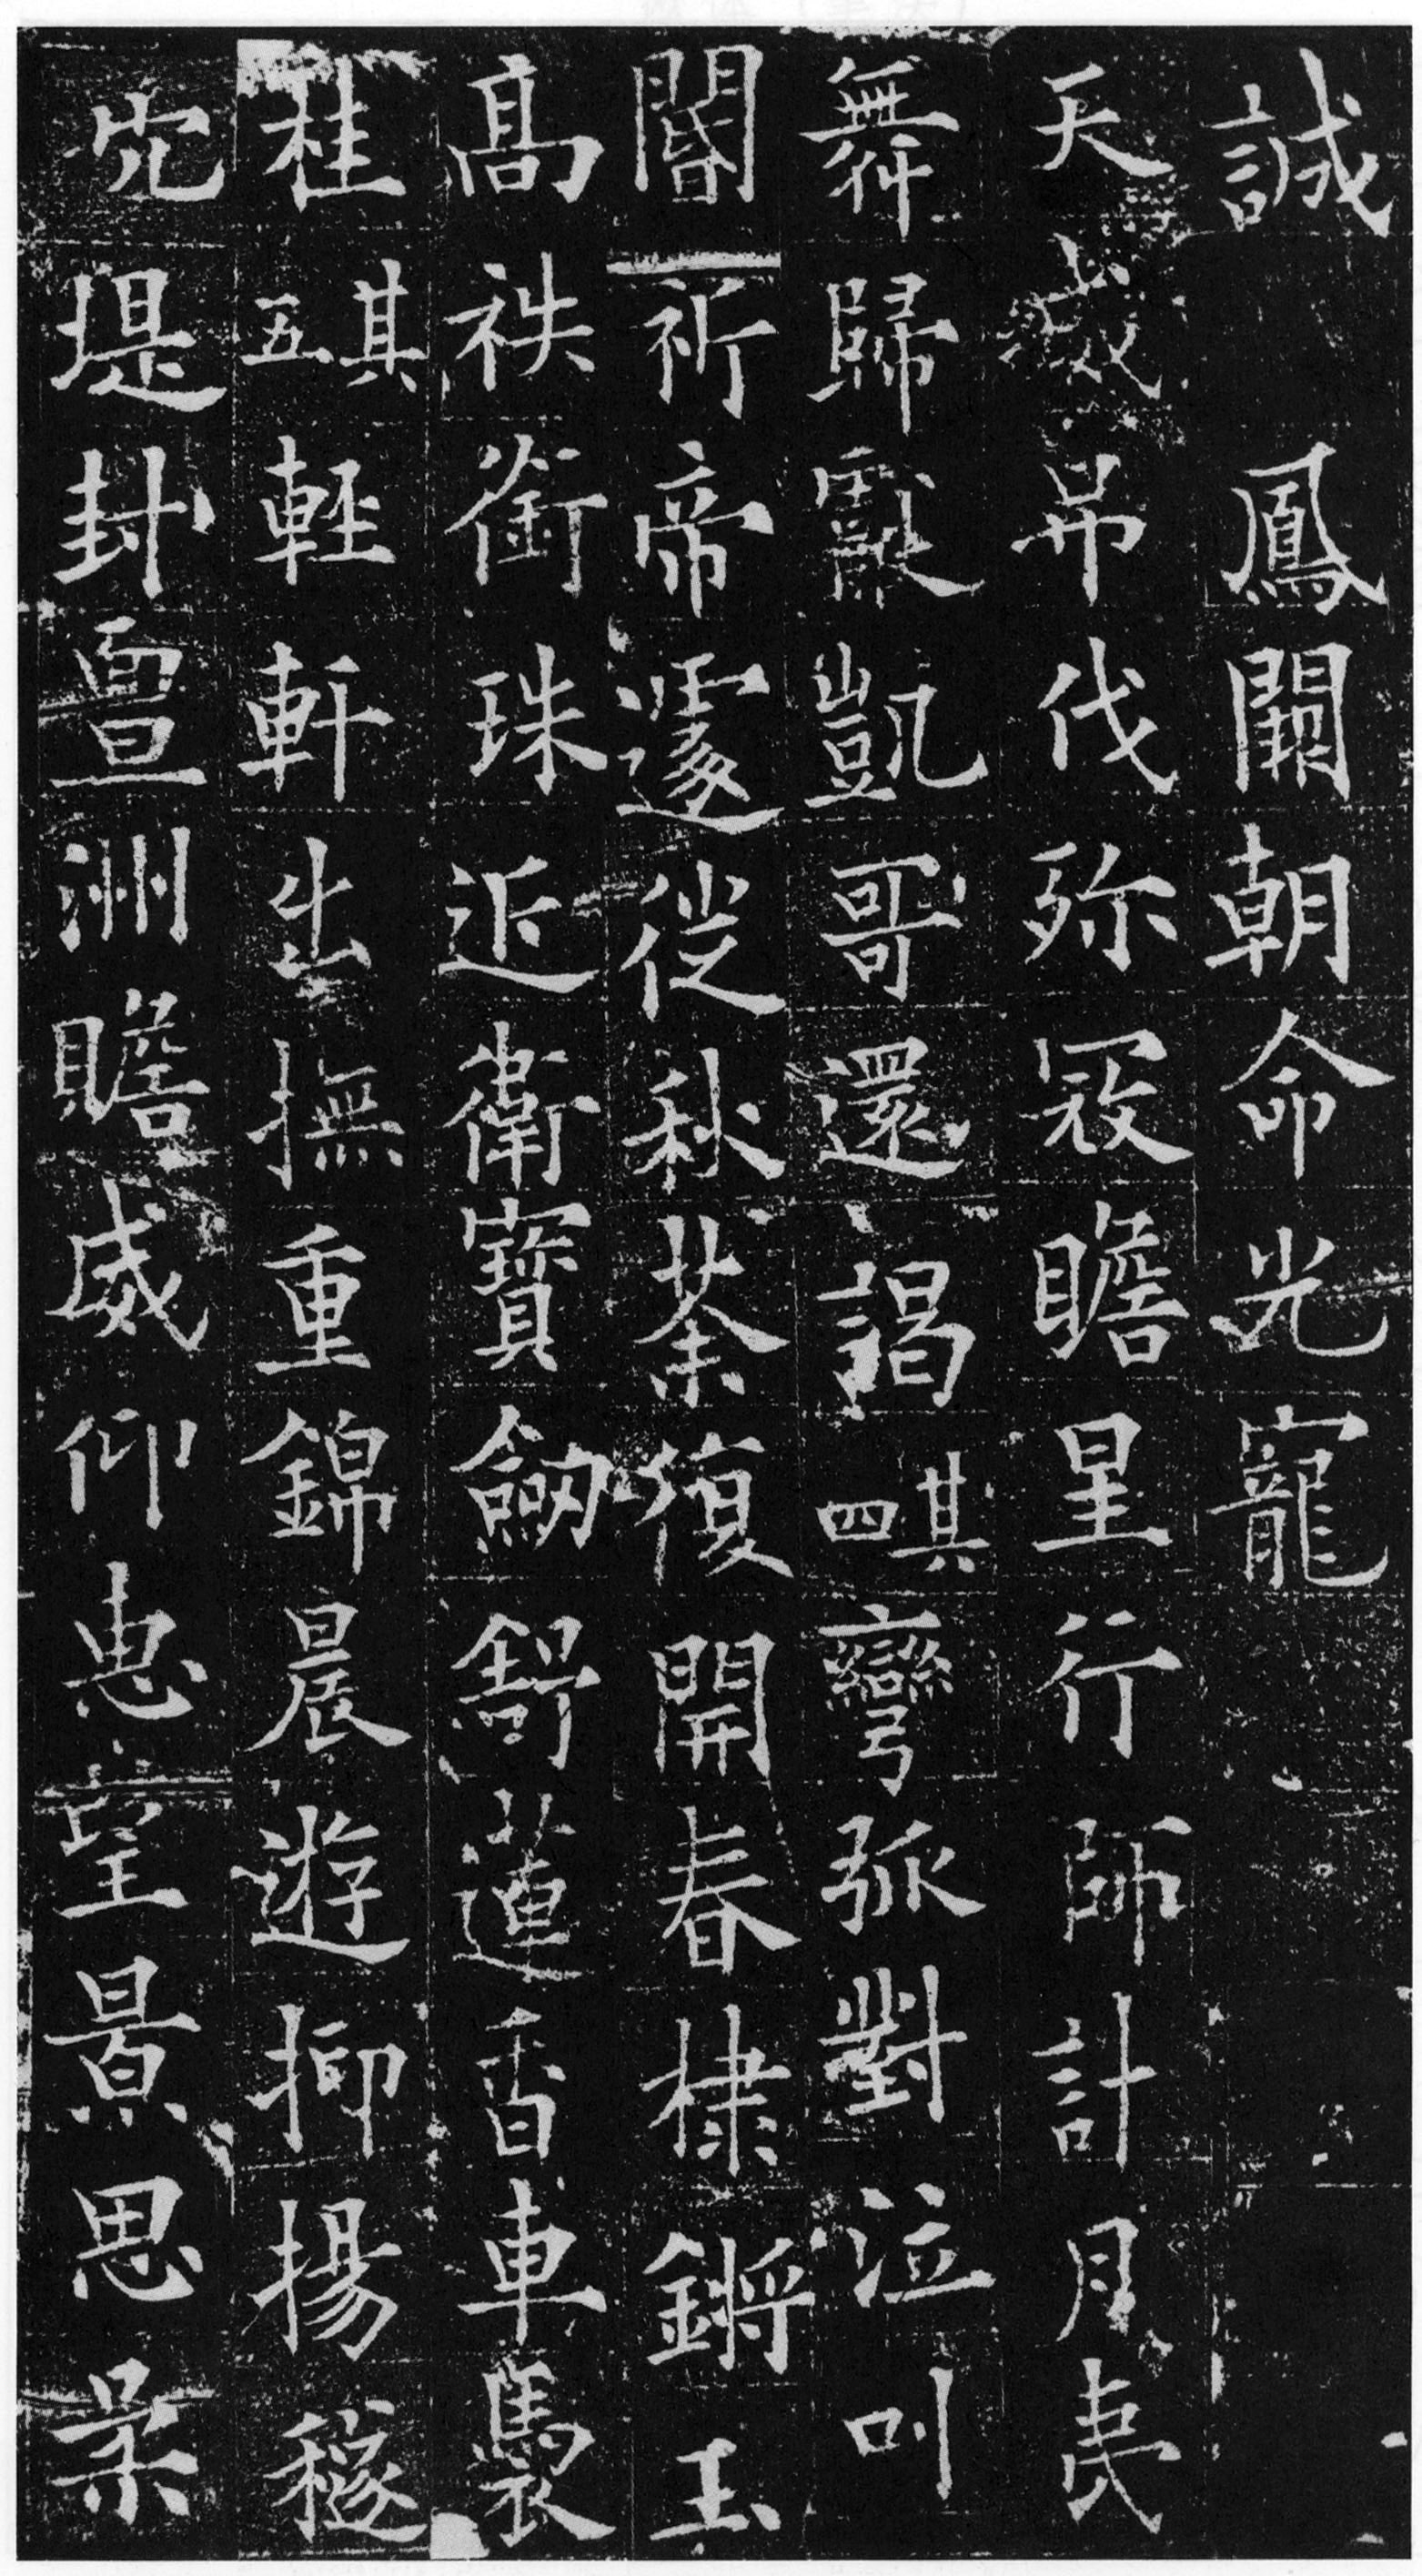 誠鳳闕朝命光寵
天威吊伐殄寇瞻星行師計月夷
舞歸獸凱哥還謁其四彎弧對泣叫
閽祈帝遽從秋荼復開春棣鏘玉
高秩銜珠近衛寶劒舒蓮香車駕
桂其五輕軒出撫重錦晨遊抑揚穟
穴堤封亶洲瞻威仰惠望景思柔